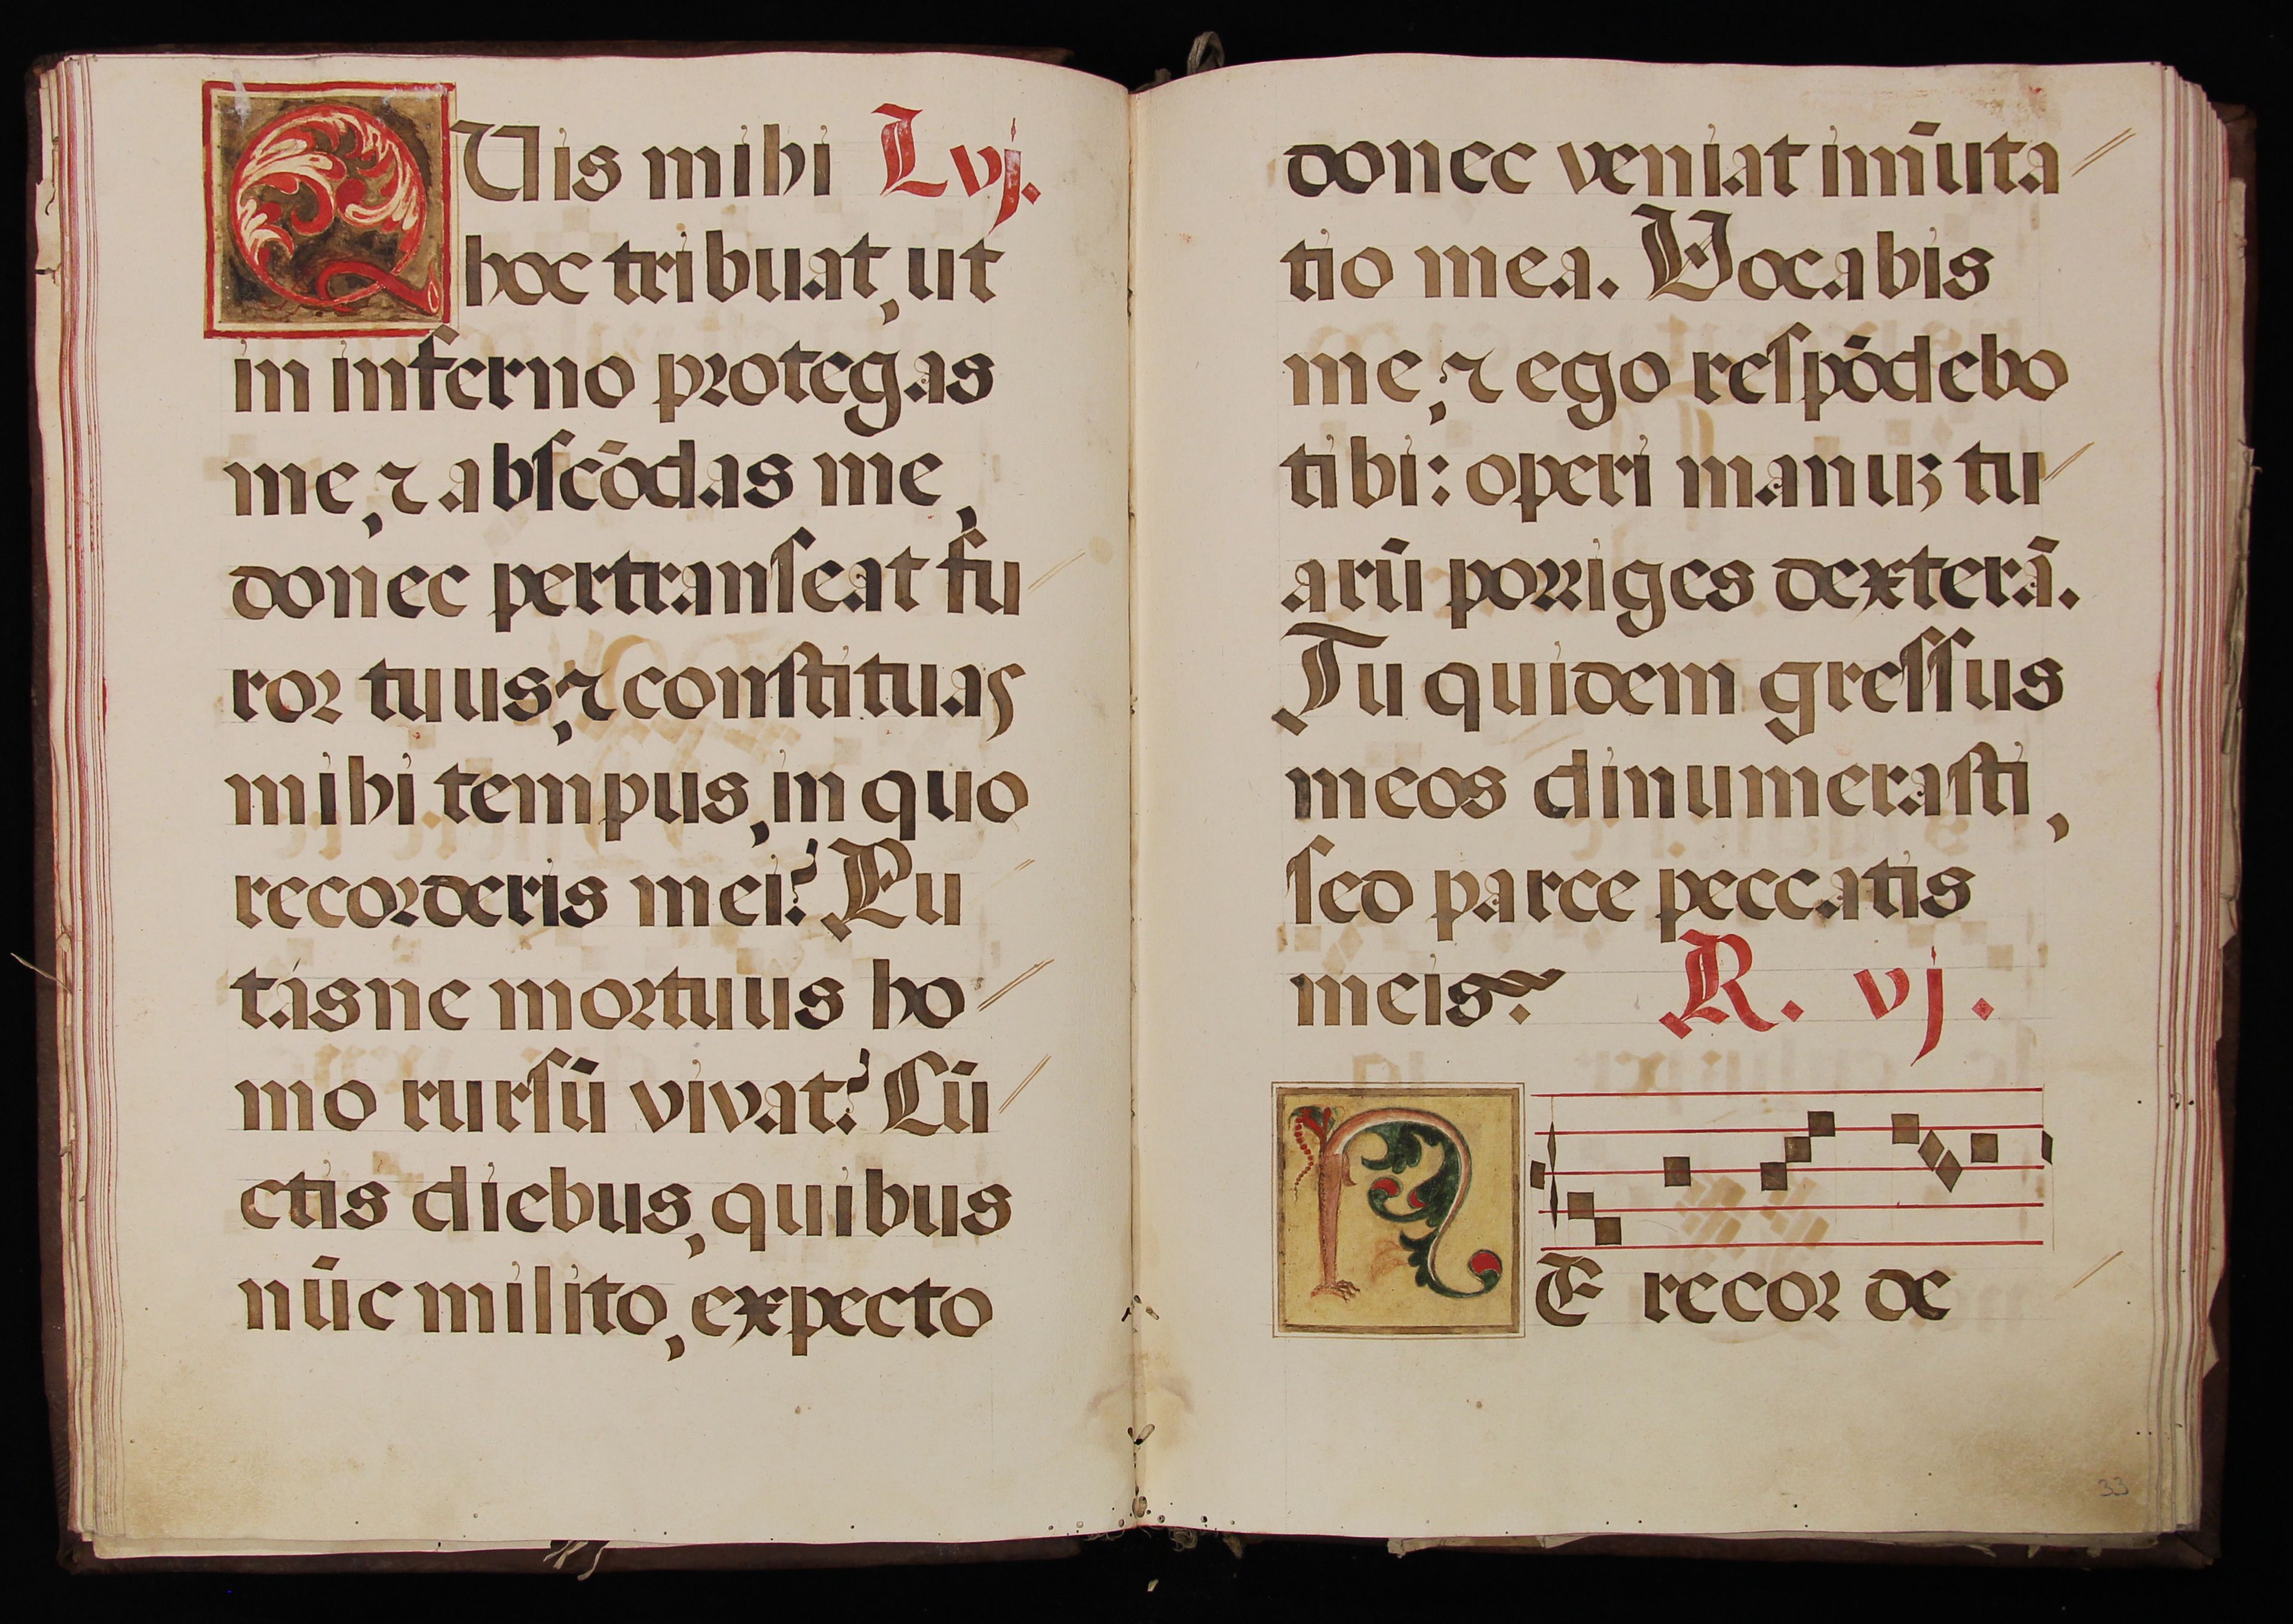 QUis mihi L vj.
hoc tribuat, ut
in inferno protegas
me, ⁊ abscōdas me,
donec pertranseat fu
ror tuus, ⁊ constituas
mihi tempus, in quo
recorderis mei? Pu
tásne mortuus ho
mo rursū vivat? Cū
ctis diebus, quibus
nūc milito, expecto
donec veniat im̄uta
tio mea. Vocabis
me, ⁊ ego respōdebo
tibi: operi manuꝫ tu
arū porriges dexterā.
Tu quidem gressus
meos dinumerasti,
sed parce peccatis
meis. R. vj.
NE recor de
33